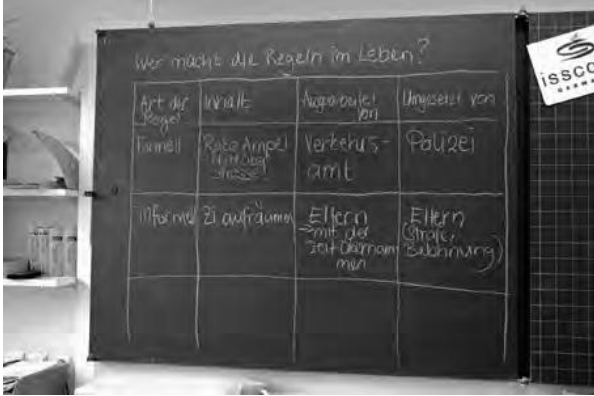 Wer macht die Regeln im Leben?
Art der
Regel
Inhalt
Ausgearbeitet
von
Umgesetzt von
Formell
Rote Ampel
Verkehrs-
amt
Polizei
Informell
Zi aufräumen
Eltern
→ mit der
Zeit
Eltern
(Strafe,
Belohnung)
issco